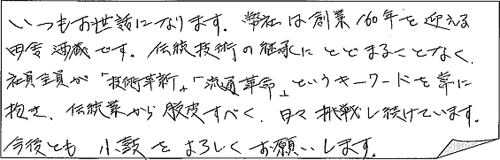 いつもお世話になります。弊社は創業160年を迎える
田舎酒蔵です。伝統技術の継承にとどまることなく、
社員全員が「技術革新」、「流通革命」というキーワードを常に
抱き、伝統業から脱皮すべく、日々挑戦し続けています。
今後とも 小鼓をよろしくお願いします。